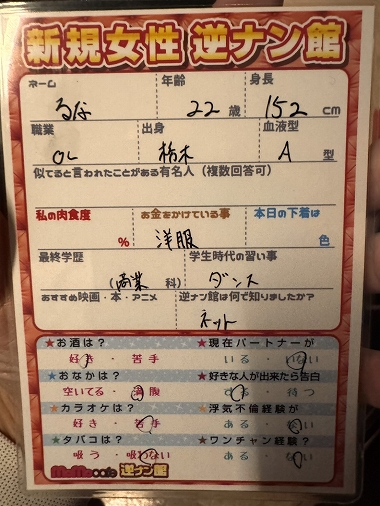 新規女性 逆ナン館
ネーム 年齢 身長
るな 22歳 152cm
職業 出身 血液型
OL 栃木 A型
似てると言われたことがある有名人（複数回答可）
私の肉食度 お金をかけている事 本日の下着は
% 洋服 色
最終学歴 学生時代の習い事
（商業科） ダンス
おすすめ映画・本・アニメ 逆ナン館は何で知りましたか？
ネット
★お酒は？ ★現在パートナーが
好き・苦手 いる・いない
★おなかは？ ★好きな人が出来たら告白
空いてる・満腹 する・待つ
★カラオケは？ ★浮気不倫経験が
好き・苦手 ある・ない
★タバコは？ ★ワンチャン経験？
吸う・吸わない ある・ない
momocafe 逆ナン館